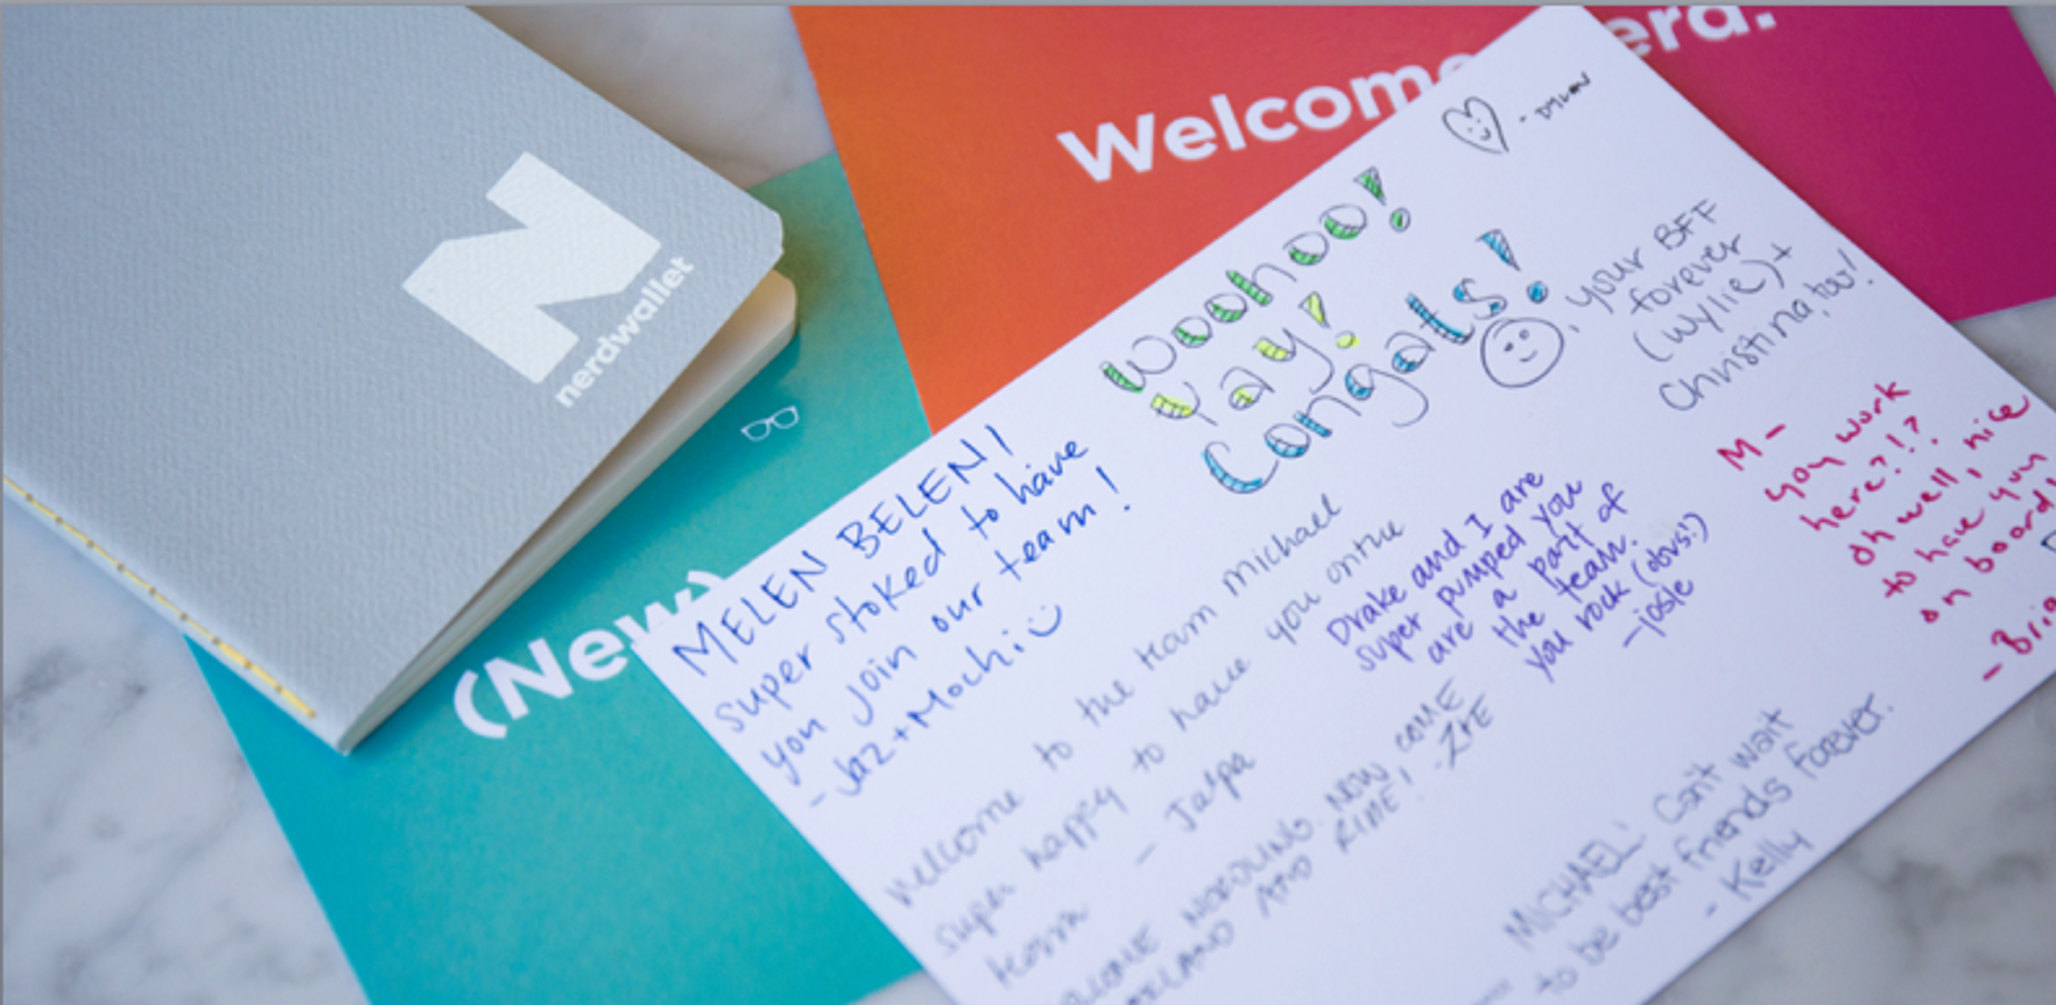 nerdwallet
Welcome
erd.
(New)
- DYLAN
Woohoo!
Yay!
Congats!
, your BFF
forever
(Wylie) +
Christina, too!
MELEN BELEN!
super stoked to have
you join our team!
- Jaz + Mochi
Welcome to the team Michael
super happy to have you on the
team - Jalpa
Drake and I are
super pumped you
are a part of
the team.
you rock (obvs!)
- josie
M -
you work
here?!?
oh well, nice
to have you
on board!
NOW, COME
AND
- ZTE
MICHAEL! Can't wait
to be best friends forever.
- Kelly